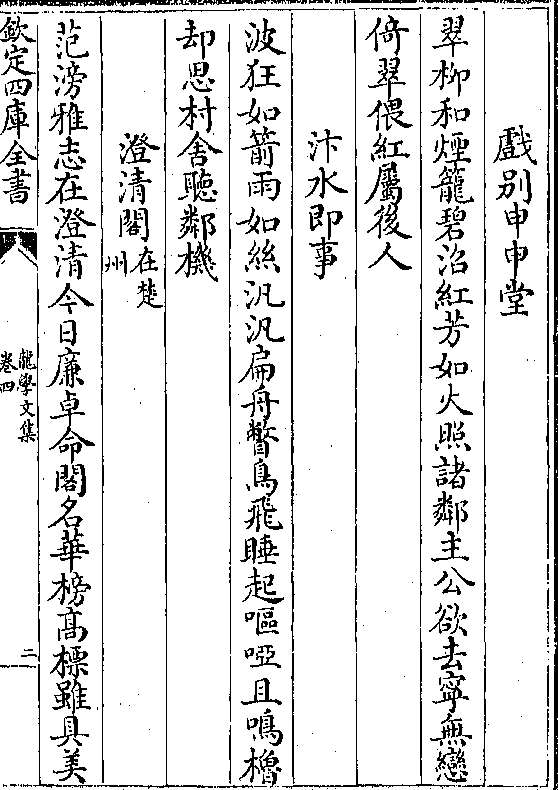 戲别申申堂
翠柳和煙籠碧沼紅芳如火照諸鄰主公欲去寧無戀
倚翠偎紅屬後人
汴水即事
波狂如箭雨如絲汎汎扁舟瞥鳥飛睡起嘔啞且鳴櫓
却思村舍聽鄰機
澄清閣在楚州
范滂雅志在澄清今日廉卓命閣名華榜髙標雖具美
欽定四庫全書
龍學文集
卷四
二